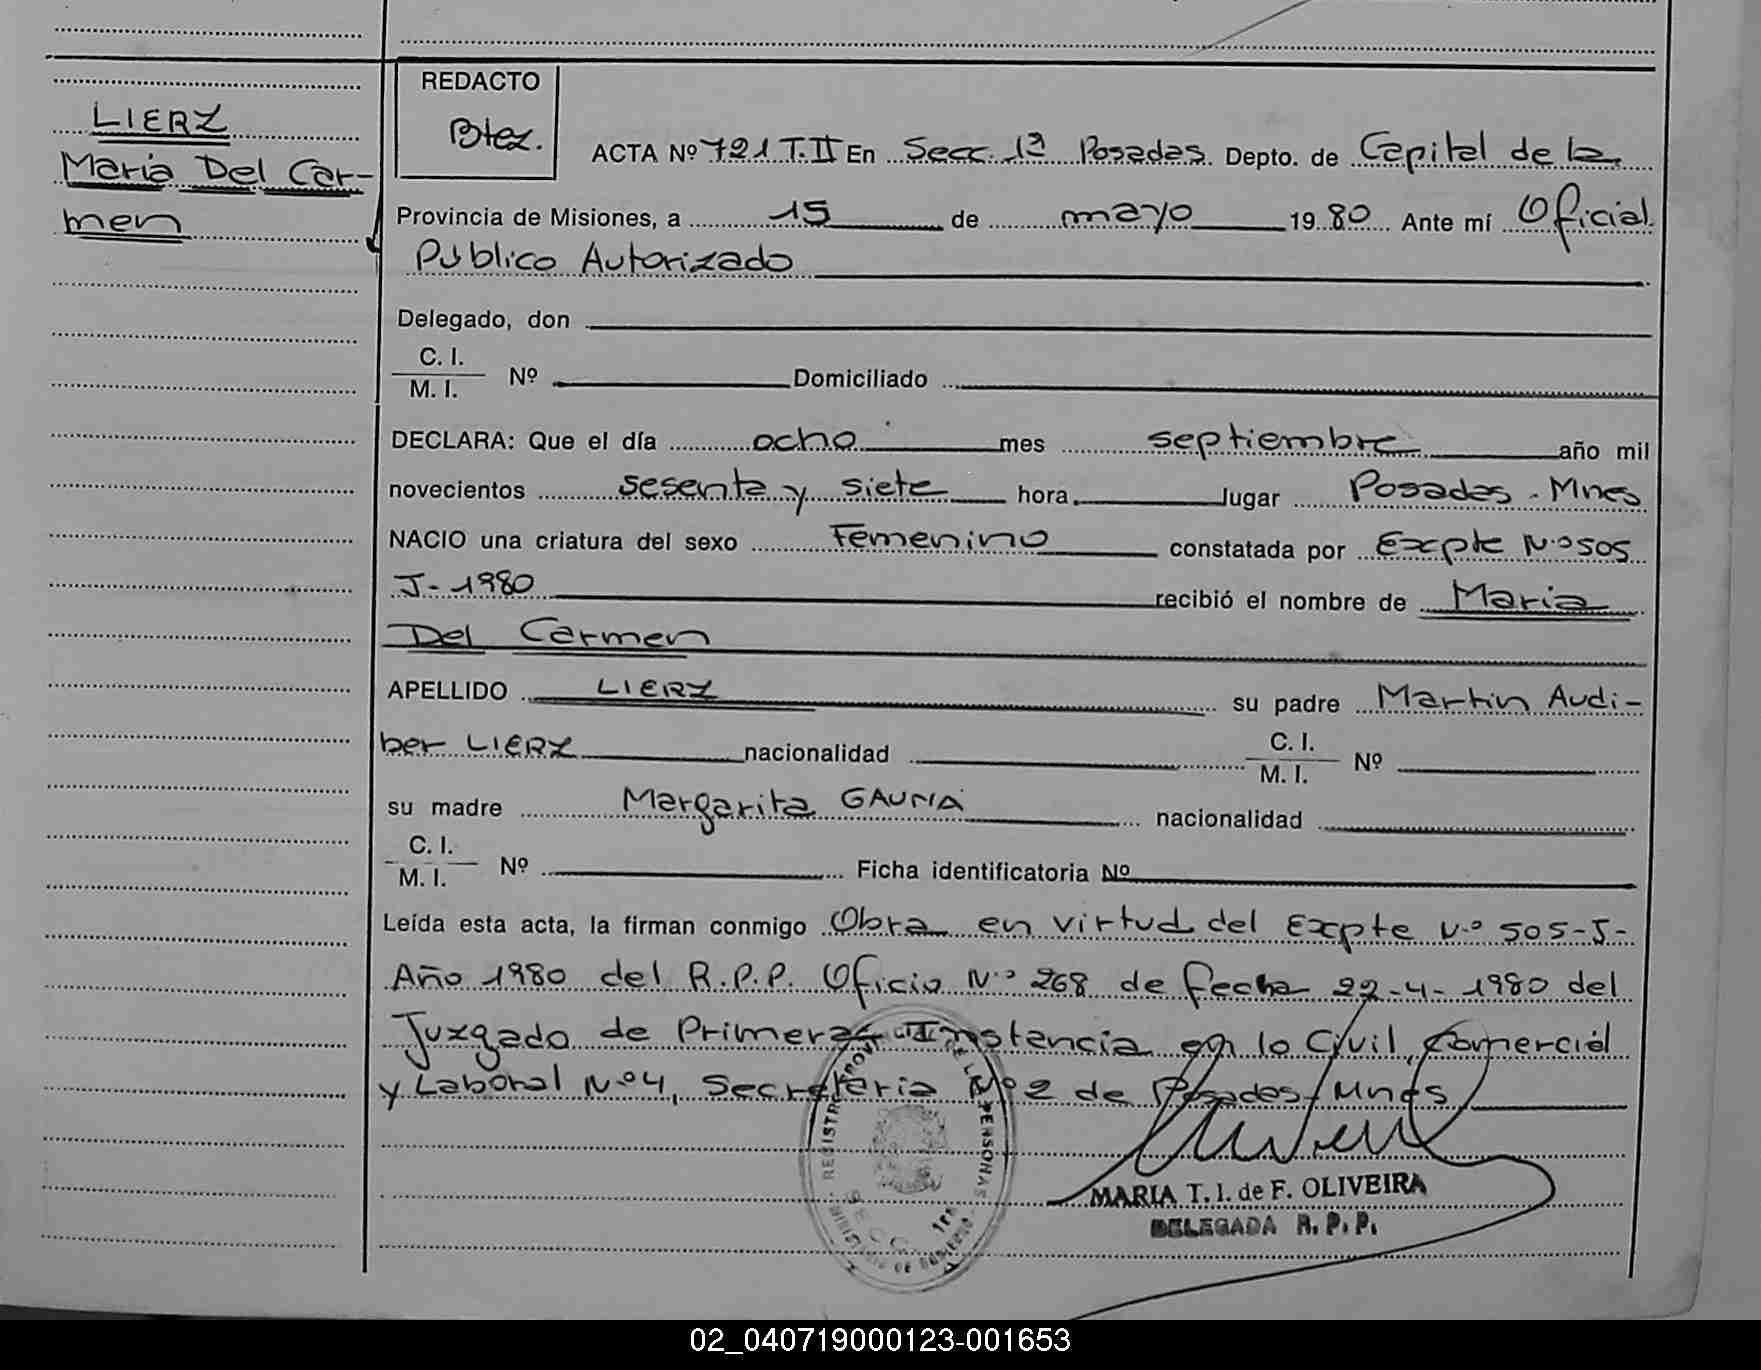 LIERZ
María Del Car-
men
REDACTO
Btez.
ACTA Nº 721 T.II En Secc. 1ª Posadas. Depto. de Capital de la
Provincia de Misiones, a 15 de mayo 1980 Ante mí Oficial
Público Autorizado
Delegado, don
C. I.
M. I. Nº Domiciliado
DECLARA: Que el día ocho mes septiembre año mil
novecientos sesenta y siete hora lugar Posadas - Mnes
NACIO una criatura del sexo Femenino constatada por Expte Nº 505
J-1980 recibió el nombre de Maria
Del Carmen
APELLIDO LIERZ su padre Martin Audi-
ber LIERZ nacionalidad C. I.
M. I. Nº
su madre Margarita GAUNA nacionalidad
C. I.
M. I. Nº Ficha identificatoria Nº
Leída esta acta, la firman conmigo Obra en virtud del Expte Nº 505-J-
Año 1980 del R.P.P. Oficio Nº 268 de fecha 22-4-1980 del
Juzgado de Primera Instancia en lo Civil, Comercial
y Laboral Nº 4, Secreteria Nº 2 de Posadas, Mnes
MARIA T. I. de F. OLIVEIRA
DELEGADA R. P. P.
02_040719000123-001653